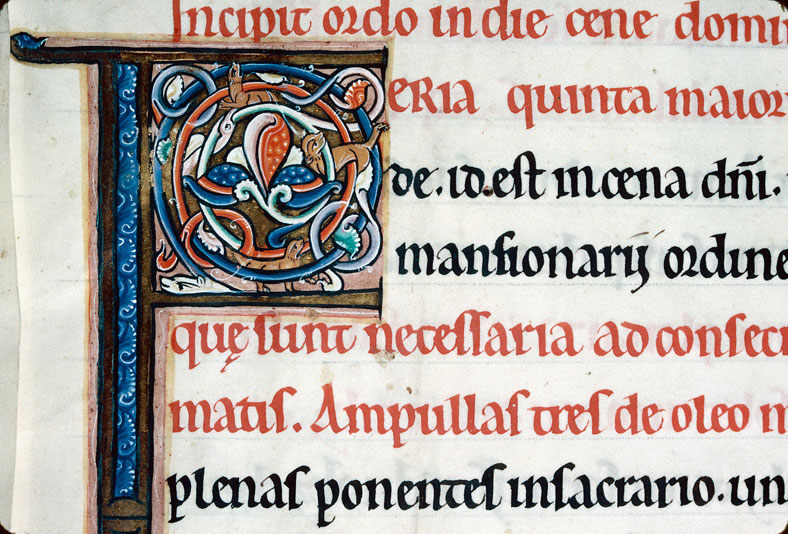 Incipit ordo in die cene domi
FERIA quinta maior
de. id. est in cena dn̄i.
mansionarij ordine
quę sunt necessaria ad consec
matis. Ampullas tres de oleo m
plenas ponentes in sacrario. un